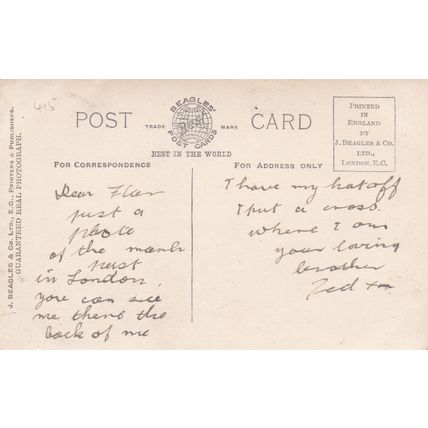 415
POST CARD
BEAGLES'
TRADE MARK
POST CARDS
BEST IN THE WORLD
PRINTED
IN
ENGLAND
BY
J. BEAGLES & Co.
LTD.,
LONDON, E.C.
J. BEAGLES & Co. LTD., E.C., PRINTERS & PUBLISHERS.
GUARANTEED REAL PHOTOGRAPH.
FOR CORRESPONDENCE
Dear
just a
photo
of the march
past
in London.
you can see
me there the
back of me
FOR ADDRESS ONLY
I have my hat off
I put a cross.
where I am
your loving
brother
Ted